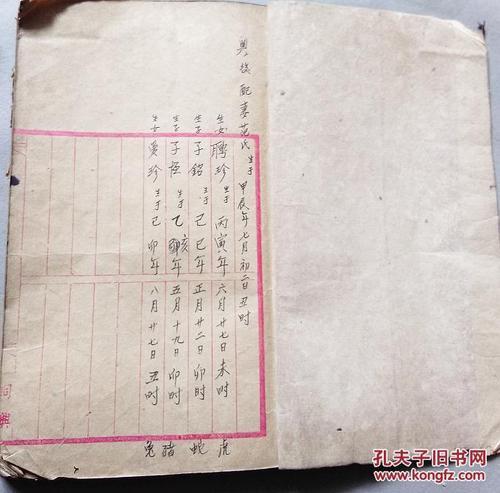 興簇配妻范氏生于甲辰年七月初二日丑时
生女聘珍生于丙寅年六月廿七日未时 虎
生子子銘生于己巳年正月廿二日卯时 蛇
生子子極生于乙亥年五月十九日卯时 猪
生女爱珍生于己卯年八月廿七日丑时 兔
同興
孔夫子旧书网